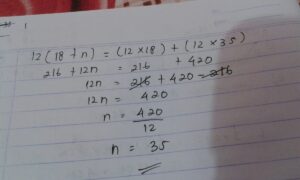 12(18+n) = (12×18) + (12×35)
216 + 12n = 216 + 420
12n = 216 + 420 - 216
12n = 420
n = 420/12
n = 35